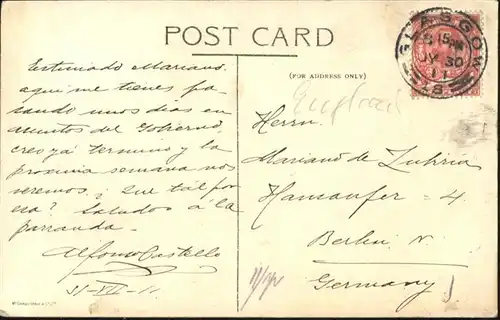 POST CARD
(FOR ADDRESS ONLY)
GLASGOW
5 15 PM
JY 30
11
S
England
Estimado Mariano.
aqui me tienes pa-
sando unos dias en
asuntos del Gobierno,
creo yá termino y la
proxima semana nos
veremos ¿ Que tal por
esa? Saludos a la
parranda.
Alfonso Castello
31-VII-11
Herrn.
Mariano de
Hansaufer = 4.
Berlin N.
Germany